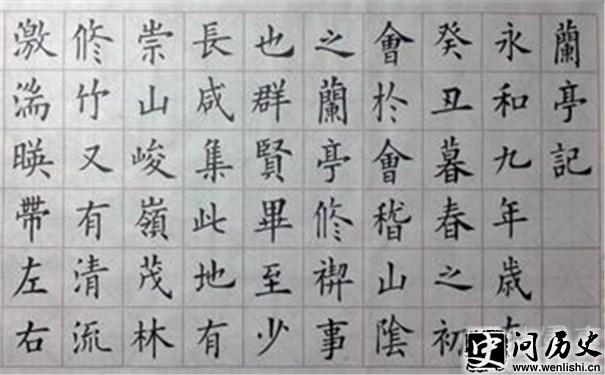 蘭亭記
永和九年歲
癸丑暮春之初
會於會稽山陰
之蘭亭修禊事
也群賢畢至少
長咸集此地有
崇山峻嶺茂林
修竹又有清流
激湍暎帶左右
问历史
www.wenlishi.cn